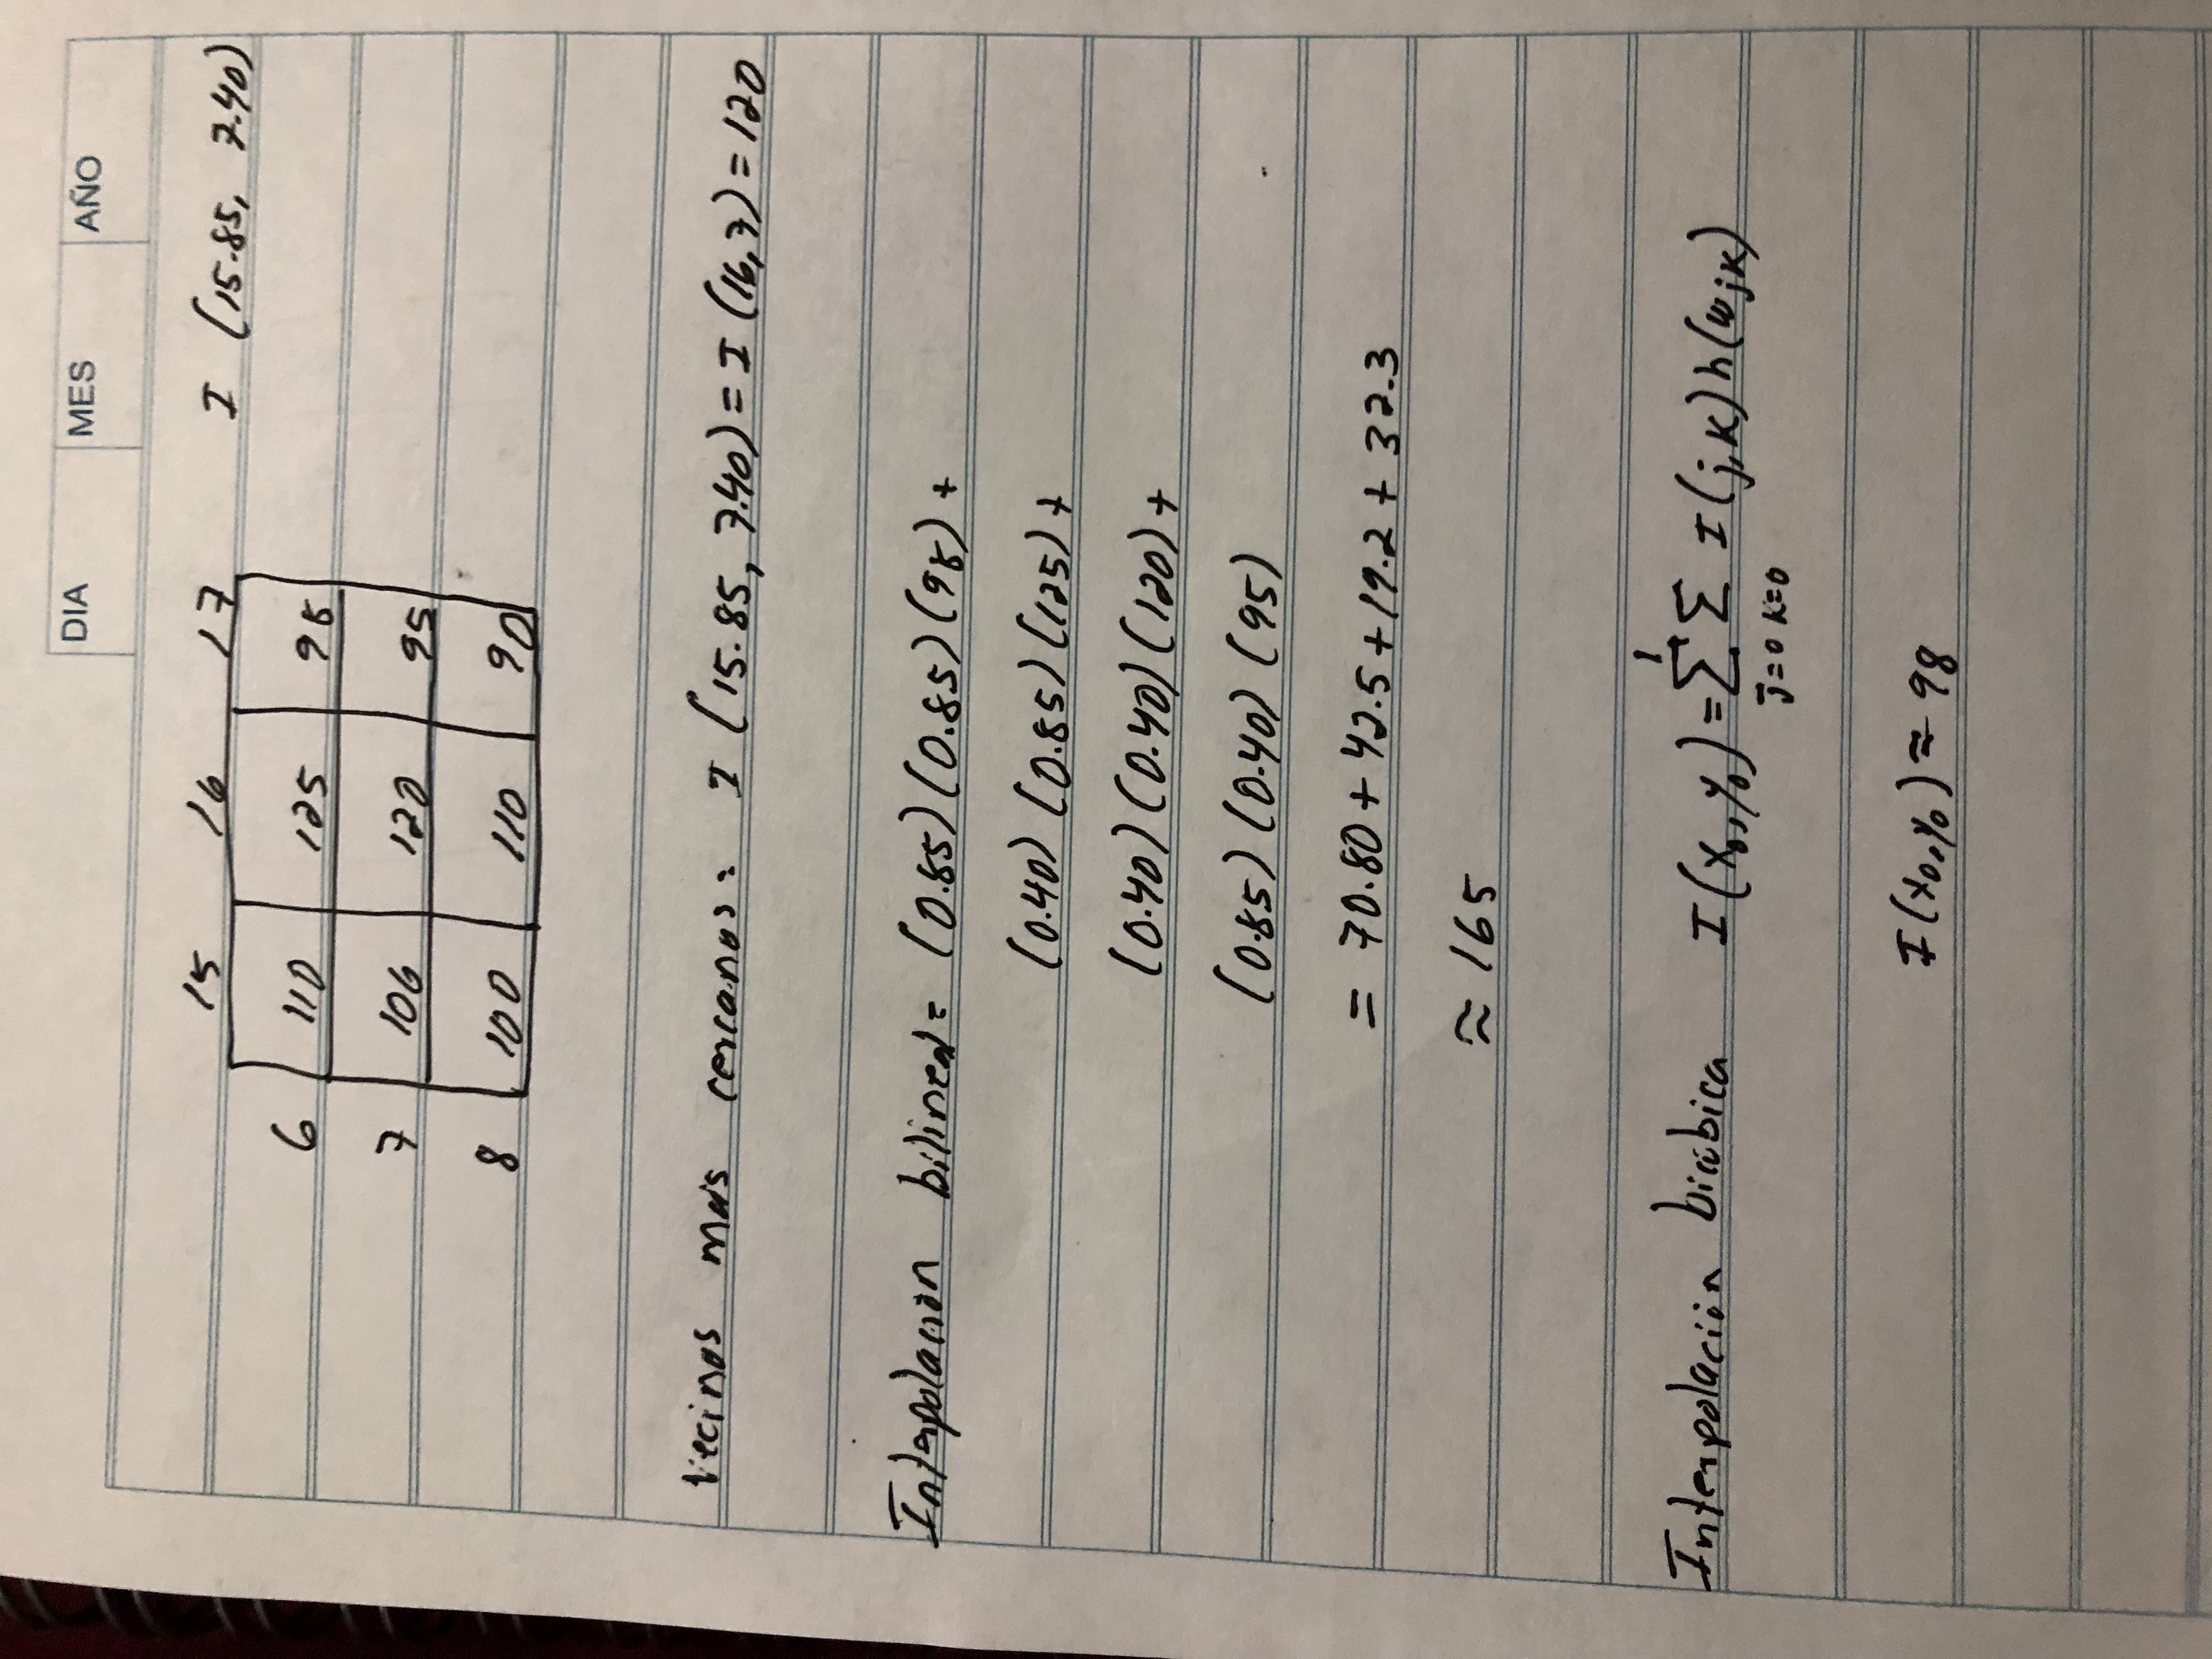 DIA MES AÑO
15 16 17 I (15.85, 7.40)
6 110 125 98
7 106 120 95
8 100 110 90
Vecinos más cercanos: I (15.85, 7.40) = I (16,7) = 120
Interpolación bilineal = (0.85)(0.85)(98) +
(0.40) (0.85)(125) +
(0.40)(0.40)(120) +
(0.85)(0.40)(95)
= 70.80 + 42.5 + 19.2 + 32.3
≈ 165
Interpolación bicúbica I(x₀, y₀) = 1∑j=0 ∑k=0 I(j,K)h(wjk)
I(x₀,y₀) ≈ 98